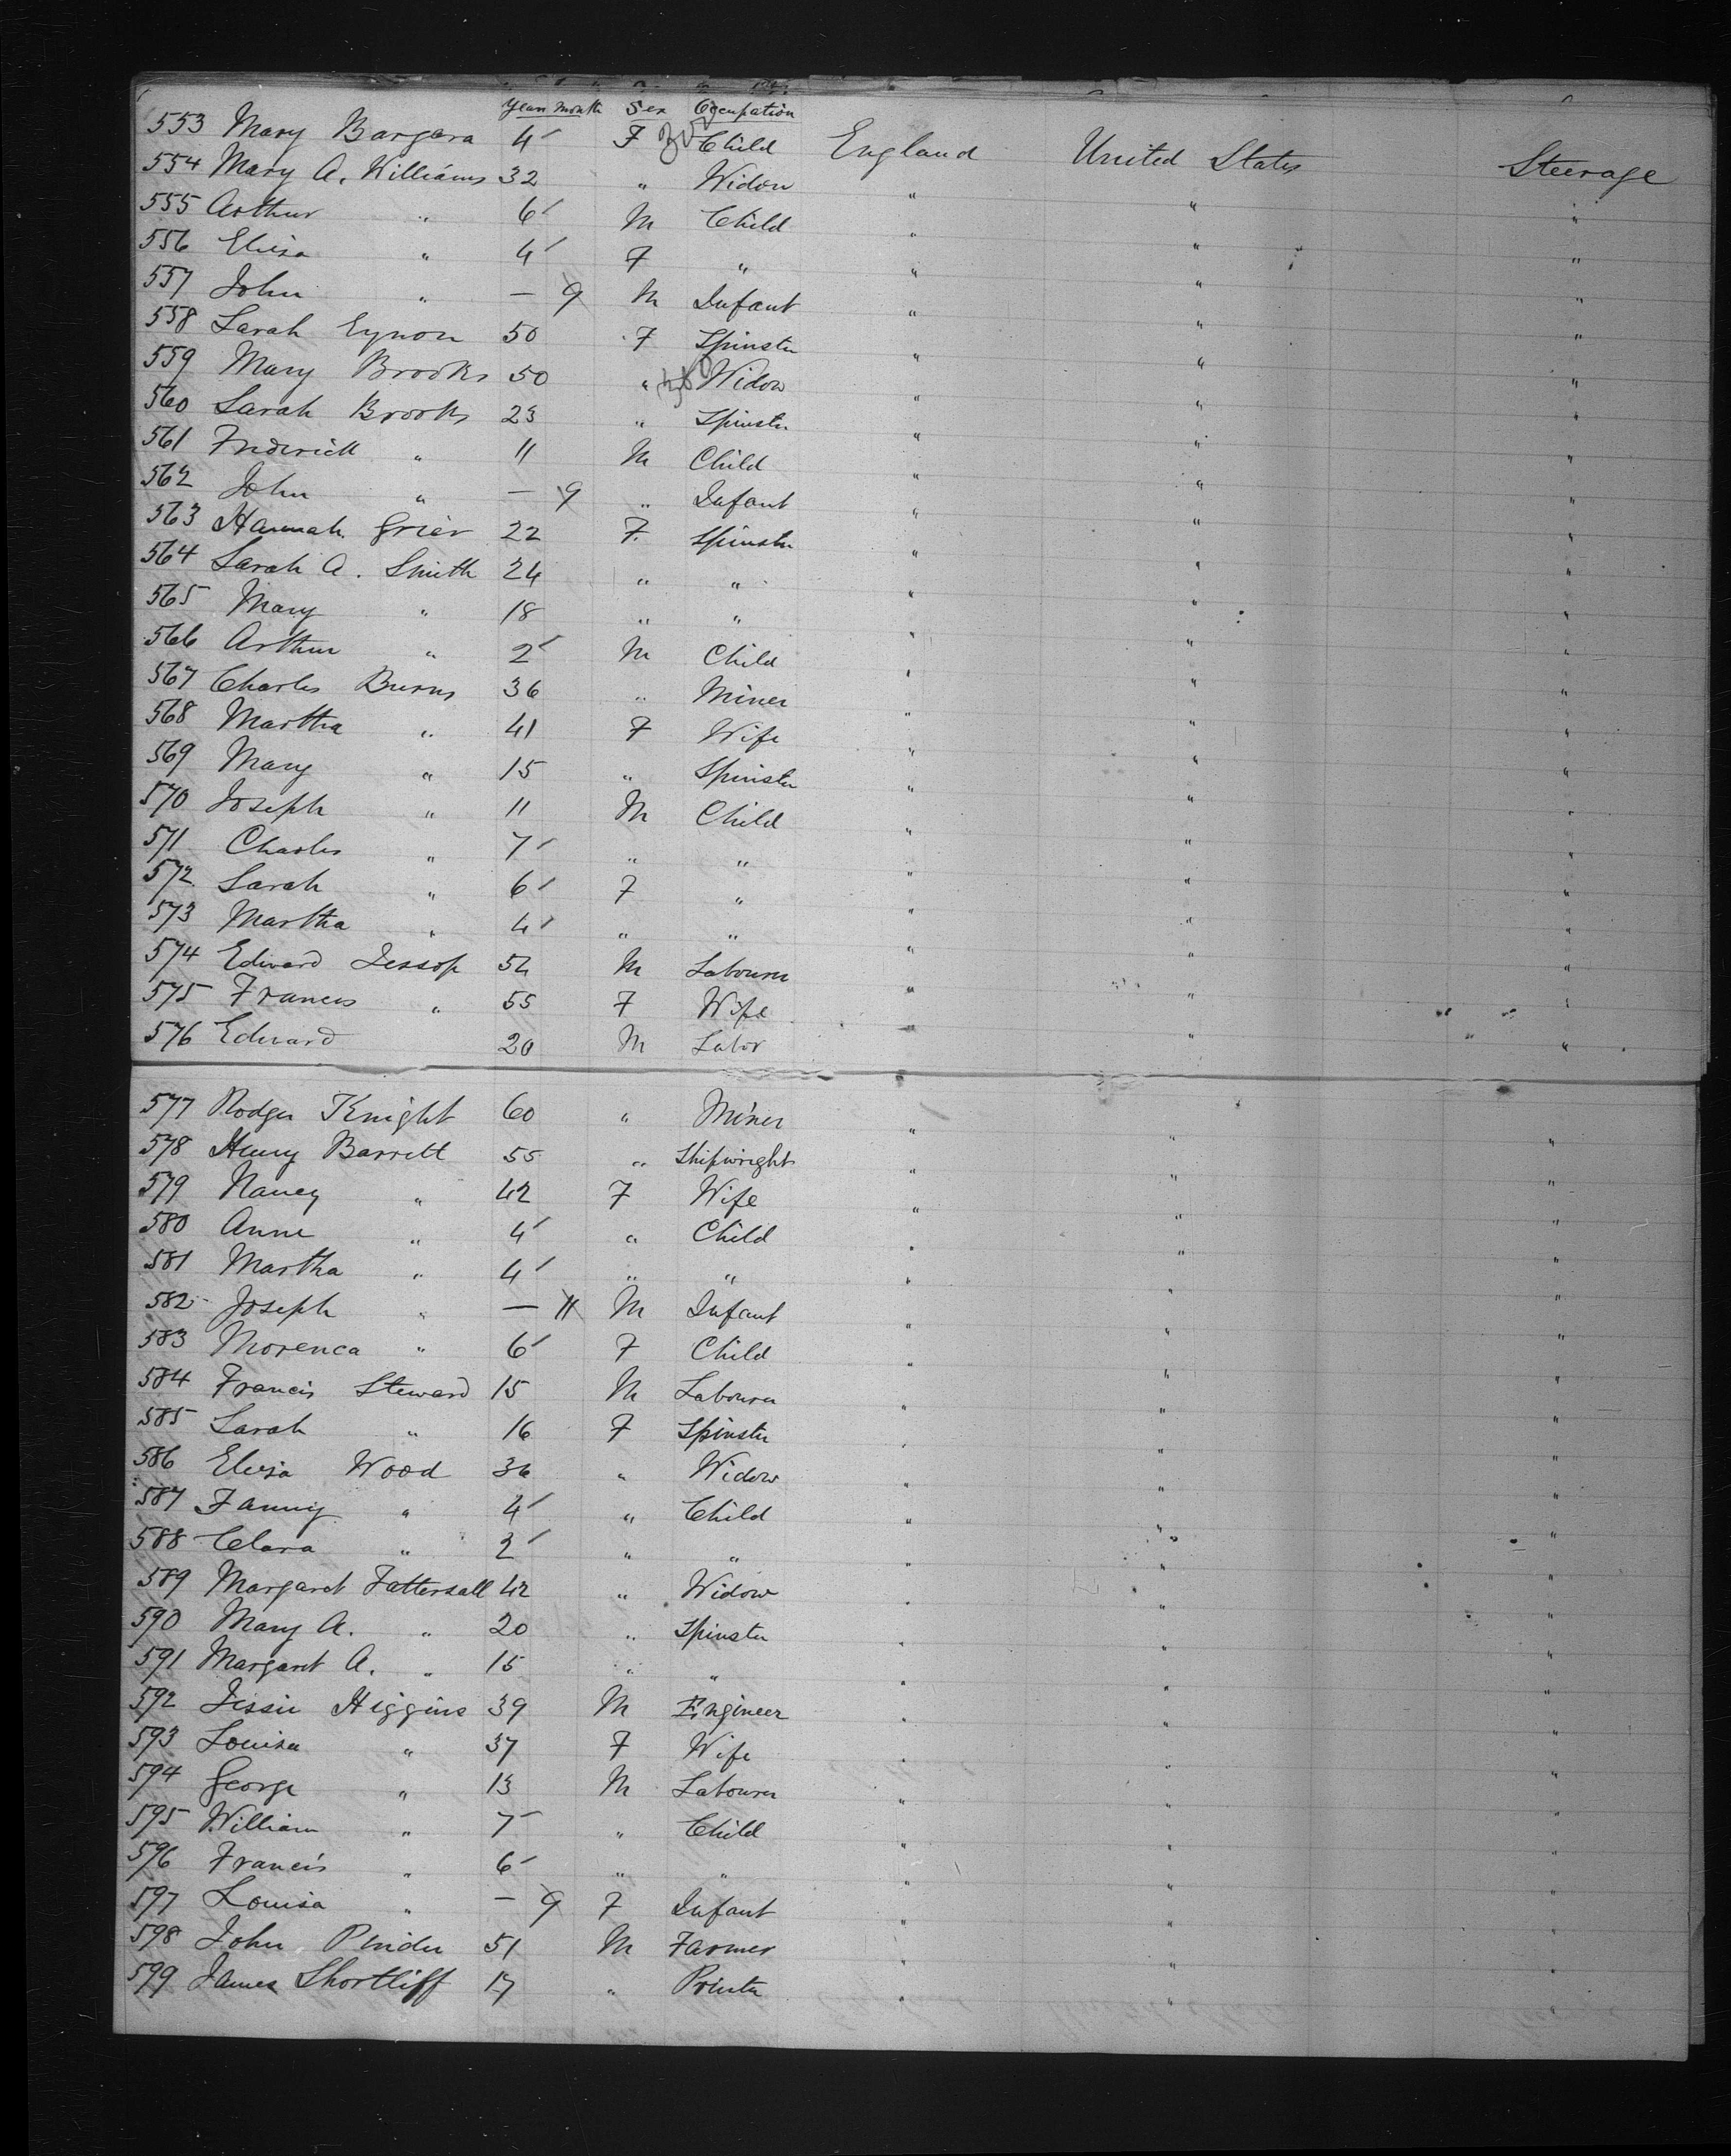 Years Month Sex Occupation
553 Mary Bargara 4 F Child England United States Steerage
554 Mary A. Williams 32 " Widow " " "
555 Arthur " 6 M Child " " "
556 Eliza " 4 F " " " "
557 John " — 9 M Infant " " "
558 Sarah Eynon 50 F Spinster " " "
559 Mary Brooks 50 " Widow " " "
560 Sarah Brooks 23 " Spinster " " "
561 Frederick " 11 M Child " " "
562 John " — 9 " Infant " " "
563 Hannah Grier 22 F Spinster " " "
564 Sarah A. Smith 24 " " " " "
565 Mary " 18 " " " " "
566 Arthur " 2 M Child " " "
567 Charles Burns 36 " Miner " " "
568 Martha " 41 F Wife " " "
569 Mary " 15 " Spinster " " "
570 Joseph " 11 M Child " " "
571 Charles " 7 " " " " "
572 Sarah " 6 F " " " "
573 Martha " 4 " " " " "
574 Edward Jessop 54 M Labourer " " "
575 Frances " 55 F Wife " " "
576 Edward 20 M Labor " "
577 Rodger Knight 60 " Miner " " "
578 Henry Barrett 55 " Shipwright " " "
579 Nancy " 42 F Wife " " "
580 Anne " 4 " Child " " "
581 Martha " 4 " " " " "
582 Joseph " — 11 M Infant " " "
583 Morenca " 6 F Child " " "
584 Francis Steward 15 M Labourer " " "
585 Sarah " 16 F Spinster " " "
586 Eliza Wood 36 " Widow " " "
587 Fanny " 4 " Child " " "
588 Clara " 2 " " " " "
589 Margaret Tattersall 42 " Widow " " "
590 Mary A. " 20 " Spinster " " "
591 Margaret A. " 15 " " " " "
592 Jessie Higgins 39 M Engineer " " "
593 Louisa " 37 F Wife " " "
594 George " 13 M Labourer " " "
595 William " 7 " Child " " "
596 Francis " 6 " " " " "
597 Louisa " — 9 F Infant " " "
598 John Pinder 51 M Farmer " " "
599 James Shortliff 17 " Printer " " "